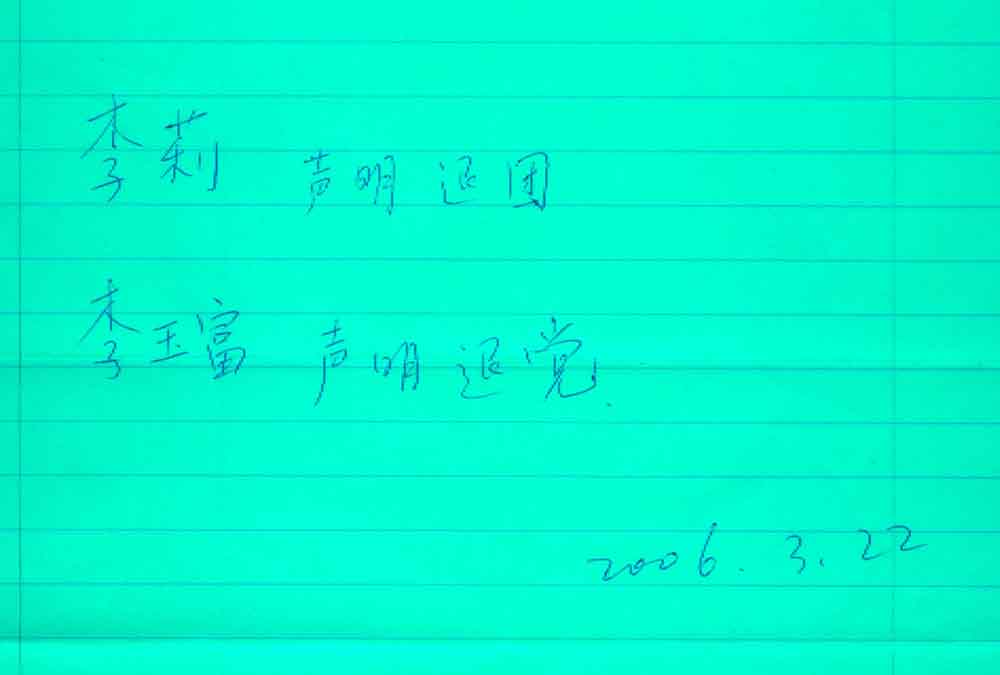 李莉 声明退团
李玉富 声明退党.
2006.3.22